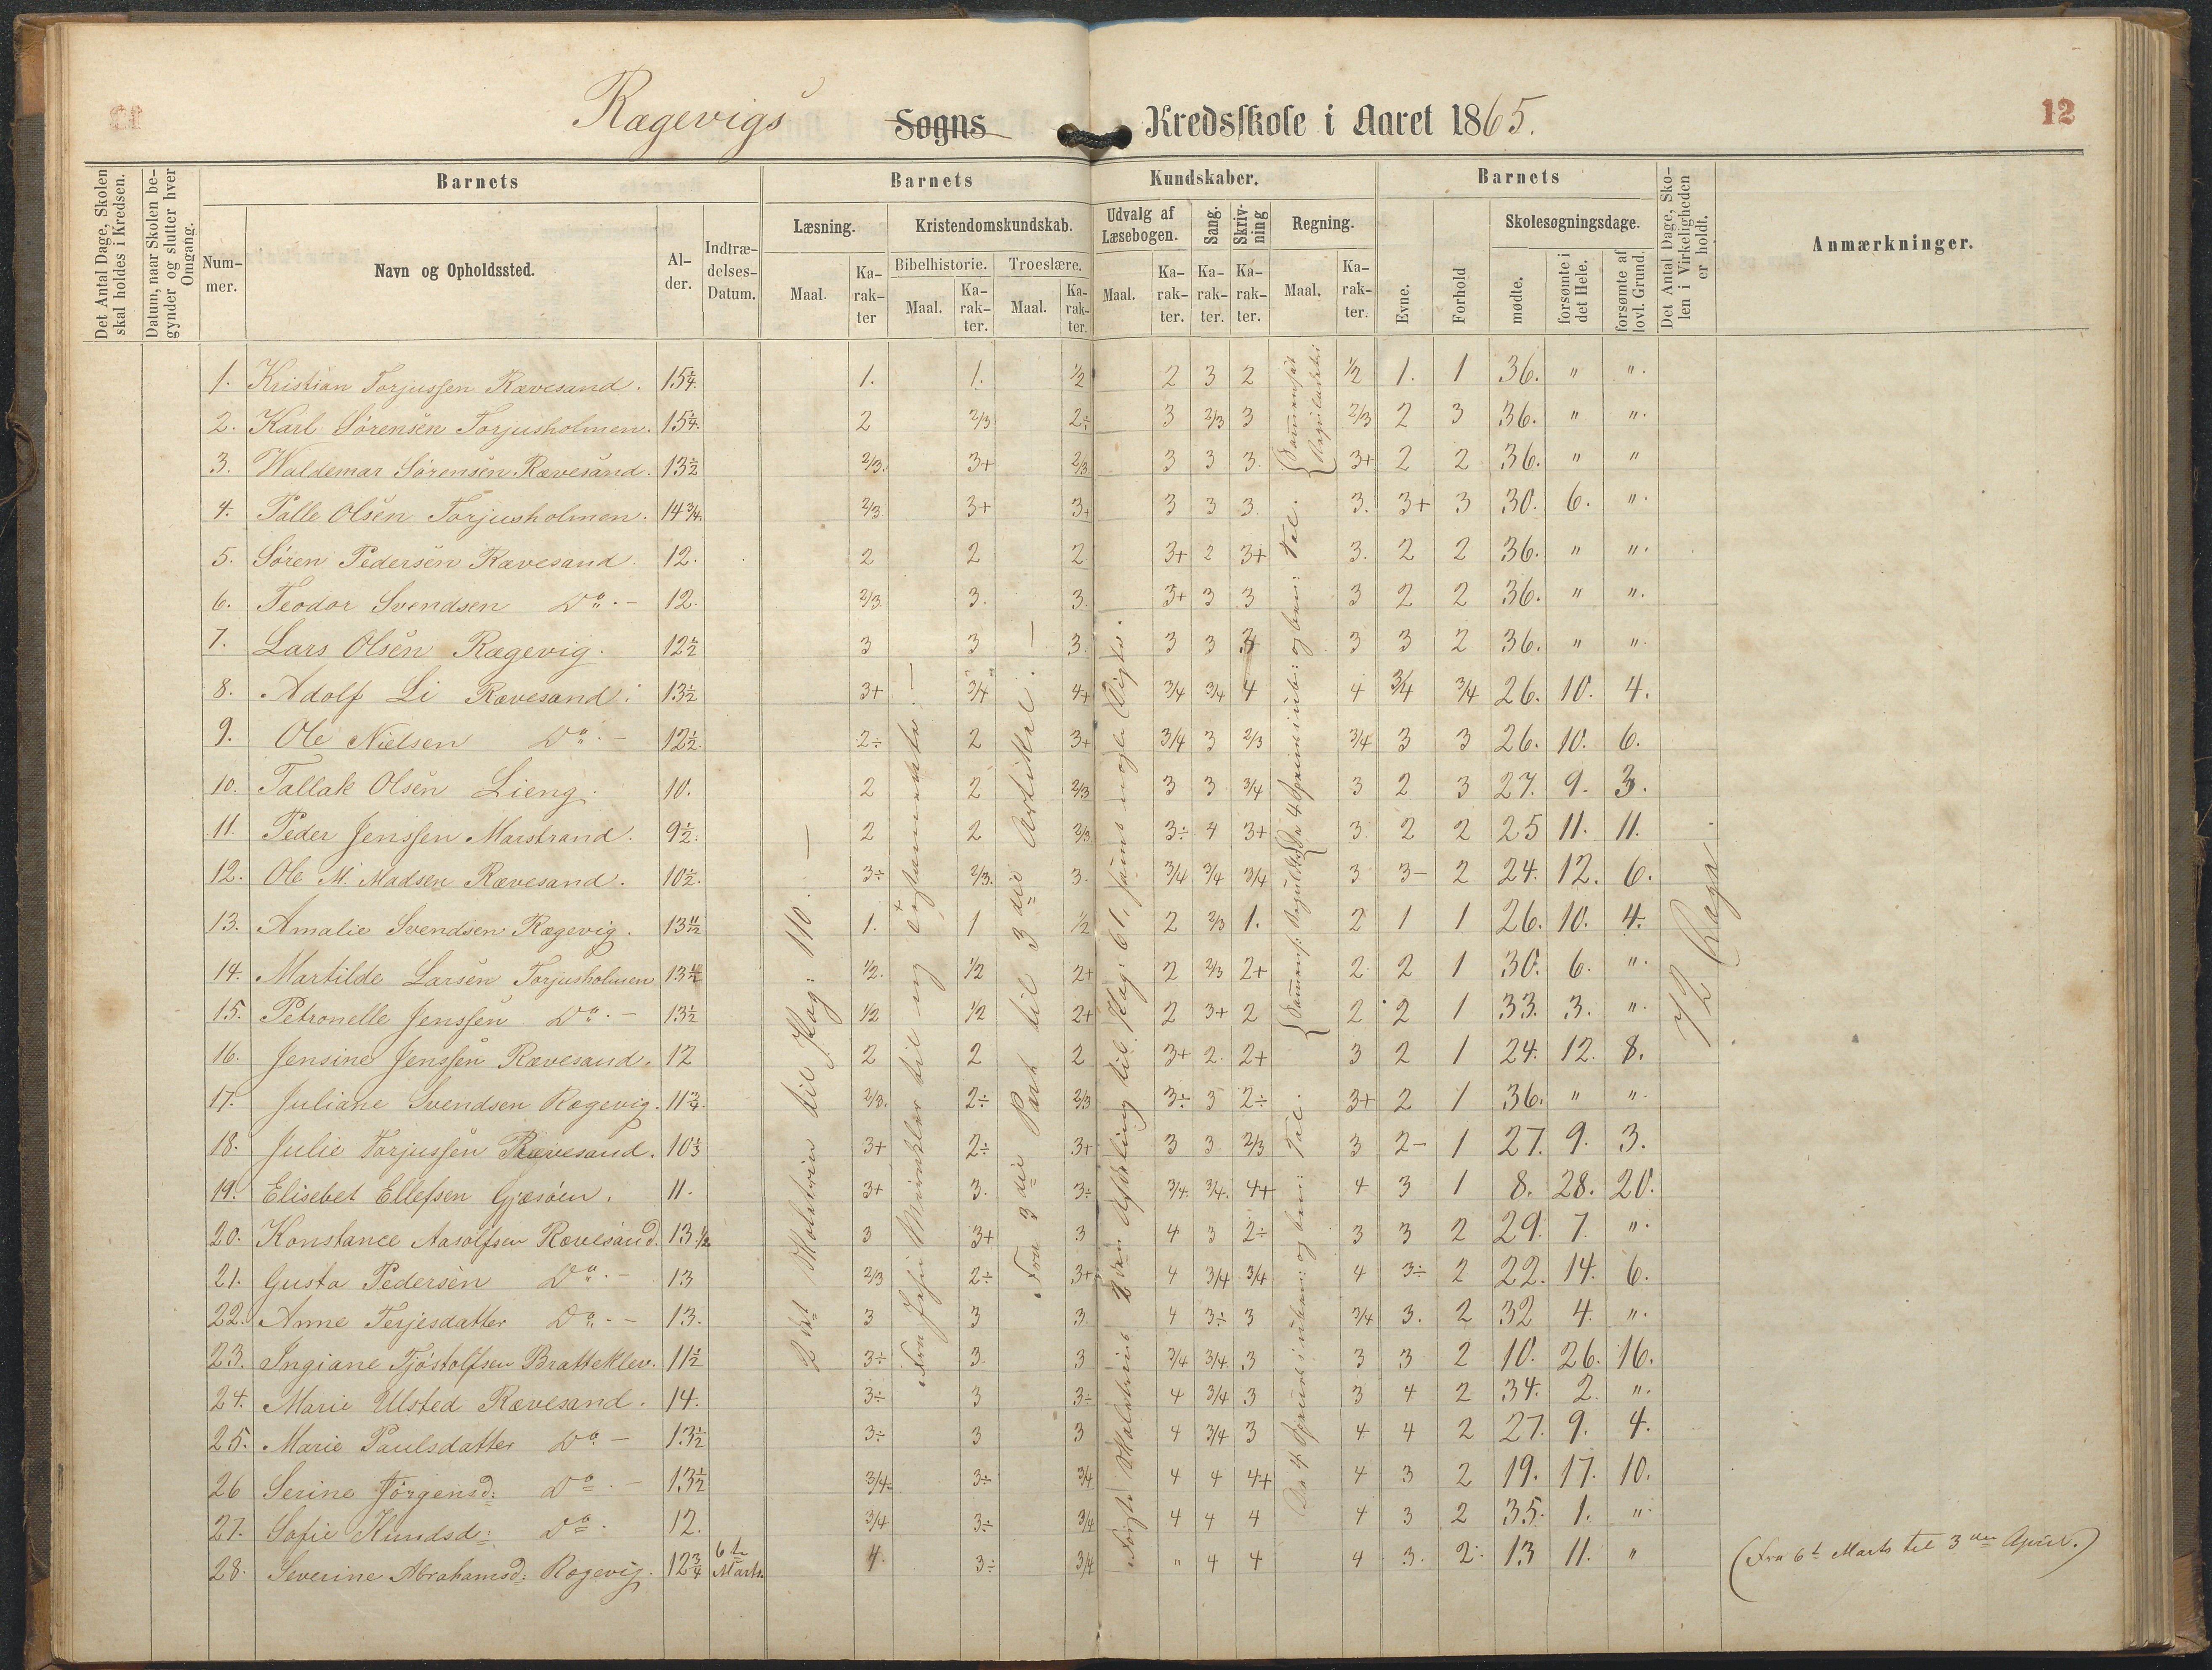 Rægevigs Sogns Kredsskole i Aaret 1865.
12
Det Antal Dage, Skolen skal holdes i Kredsen.
Datum, naar Skolen begynder og slutter hver Omgang.
Barnets
Nummer.
Navn og Opholdssted.
Alder.
Indtrædelses-Datum.
Barnets Kundskaber.
Læsning.
Maal.
Karakter
Kristendomskundskab.
Bibelhistorie.
Maal.
Karakter.
Troeslære.
Maal.
Karakter.
Udvalg af Læsebogen.
Maal.
Karakter.
Sang.
Karakter.
Skrivning
Karakter.
Regning.
Maal.
Karakter.
Barnets
Evne.
Forhold
Skolesøgningsdage.
mødte.
forsømte i det Hele.
forsømte af lovl. Grund.
Det Antal Dage, Skolen i Virkeligheden er holdt.
Anmærkninger.
1. Kristian Torjussen Rævesand. 15¼. 1. 1. ½ 2 3 2 ½ 1. 1 36. " ".
2. Karl Sørensen Torjusholmen. 15¼. 2 2/3 2÷ 3 2/3 3 2/3 2 3 36. " ".
3. Waldemar Sørensen Rævesand. 13½ 2/3. 3+ 2/3 3 3 3. 3+ 2 2 36. " "
4. Palle Olsen Torjusholmen. 14¾. 2/3. 3+ 3+ 3 3 3. 3. 3+ 3 30. 6. ".
5. Søren Pedersen Rævesand. 12. 2 2 2. 3+ 2 3+ 3. 2 2 36. " ".
6. Teodor Svendsen Do.- 12. 2/3. 3. 3. 3+ 3 3 3 2 2 36. " ".
7. Lars Olsen Rægevig. 12½ 3 3 3. 3 3 3 3 3 2 36. " ".
8. Adolf Li Rævesand. 13½ 3+ 3/4 4+ 3/4 3/4 4 4 3/4 3/4 26. 10. 4.
9. Ole Nielsen Do.- 12½. 2÷ 2 3+ 3/4 3 2/3 3/4 3 3 26. 10. 6.
10. Tallak Olsen Lieng. 10. 2 2 2/3 3 3 3/4 3 2 3 27. 9. 3.
11. Peder Jenssen Marstrand. 9½. 2 2 2/3 3÷ 4 3+ 3. 2 2 25 11. 11.
12. Ole M. Madsen Rævesand. 10½. 3÷ 2/3. 3. 3/4 3/4 3/4 3 3- 2 24. 12. 6.
13. Amalie Svendsen Rægevig. 13 11/12 1. 1 ½ 2 2/3 1. 2 1 1 26. 10. 4.
14. Martilde Larsen Torjusholmen ½. ½ 2+ 2 2/3 2+ 2 2 1 30. 6. ".
15. Petronelle Jenssen Do.- 13½ ½ ½ 2+ 2 3+ 2 2 2 1 33. 3. ".
16. Jensine Jenssen Rævesand. 12 2 2 2 3+ 2. 2+ 3 2 1 24. 12. 8.
17. Juliane Svendsen Rægevig. 11¾. 2/3. 2÷ 2/3 3÷ 3 2÷ 3+ 2 1 36. " ".
18. Julie Torjussen Rævesand. 10⅓ 3+ 2÷ 3+ 3 3 2/3 3 2- 1 27. 9. 3.
19. Elisebet Ellefsen Gjæsøen. 11. 3+ 3. 3÷ 3/4. 3/4. 4+ 4 3 1 8. 28. 20.
20. Konstance Aasolfsen Rævesand. 13½ 3 3+ 3 4 3 2÷ 3 3 2 29. 7. ".
21. Gusta Pedersen Do.- 13 2/3 2÷ 3+ 4 3/4 3/4 4 3÷ 2 22. 14. 6.
22. Anne Terjesdatter Do.- 13. 3 3 3. 4 3÷ 3 3/4 3. 2 32 4. ".
23. Ingiane Tjøstolfsen Bratteklev. 11½ 3÷ 3. 3 3/4 3/4. 3 3 3 2 10. 26. 16.
24. Marie Ulsted Rævesand. 14. 3÷ 3 3÷ 4 3/4 3 3 4 2 34. 2. ".
25. Marie Paulsdatter Do - 13½ 3÷ 3 3 4 3/4 3 4 4 2 27. 9. 4.
26 Serine Jörgensd: Do.- 13½ 3/4. 3÷ 3/4 4 4 4+ 4 3 2 19. 17. 10.
27. Sofie Knudsd: Do. 12. 3/4 3÷ 3/4 4 4 4 4 3 2 35. 1. ".
28. Severine Abrahamsd: Rægevig. 12¾ 6te Marts. 4. 3÷ 3/4 " 4 4 4 3. 2. 13 11. " (Fra 6t Marts til 3die April.)
2det Maaltrin til Pag: 110. -
Fra Jesu Mirakler til og Testamentet. -
Fra 3die Part til 3die Artikel. -
Første Maaltrins 2den Afdeling til Pag: 61, samt nogle Digte.
{Sammensat Reguladetri
De 4 Species i uben: og ben: Tal.
{Sammens: Reguladetri
De 4 Species i uben: og ben: Tal.
72 Dage